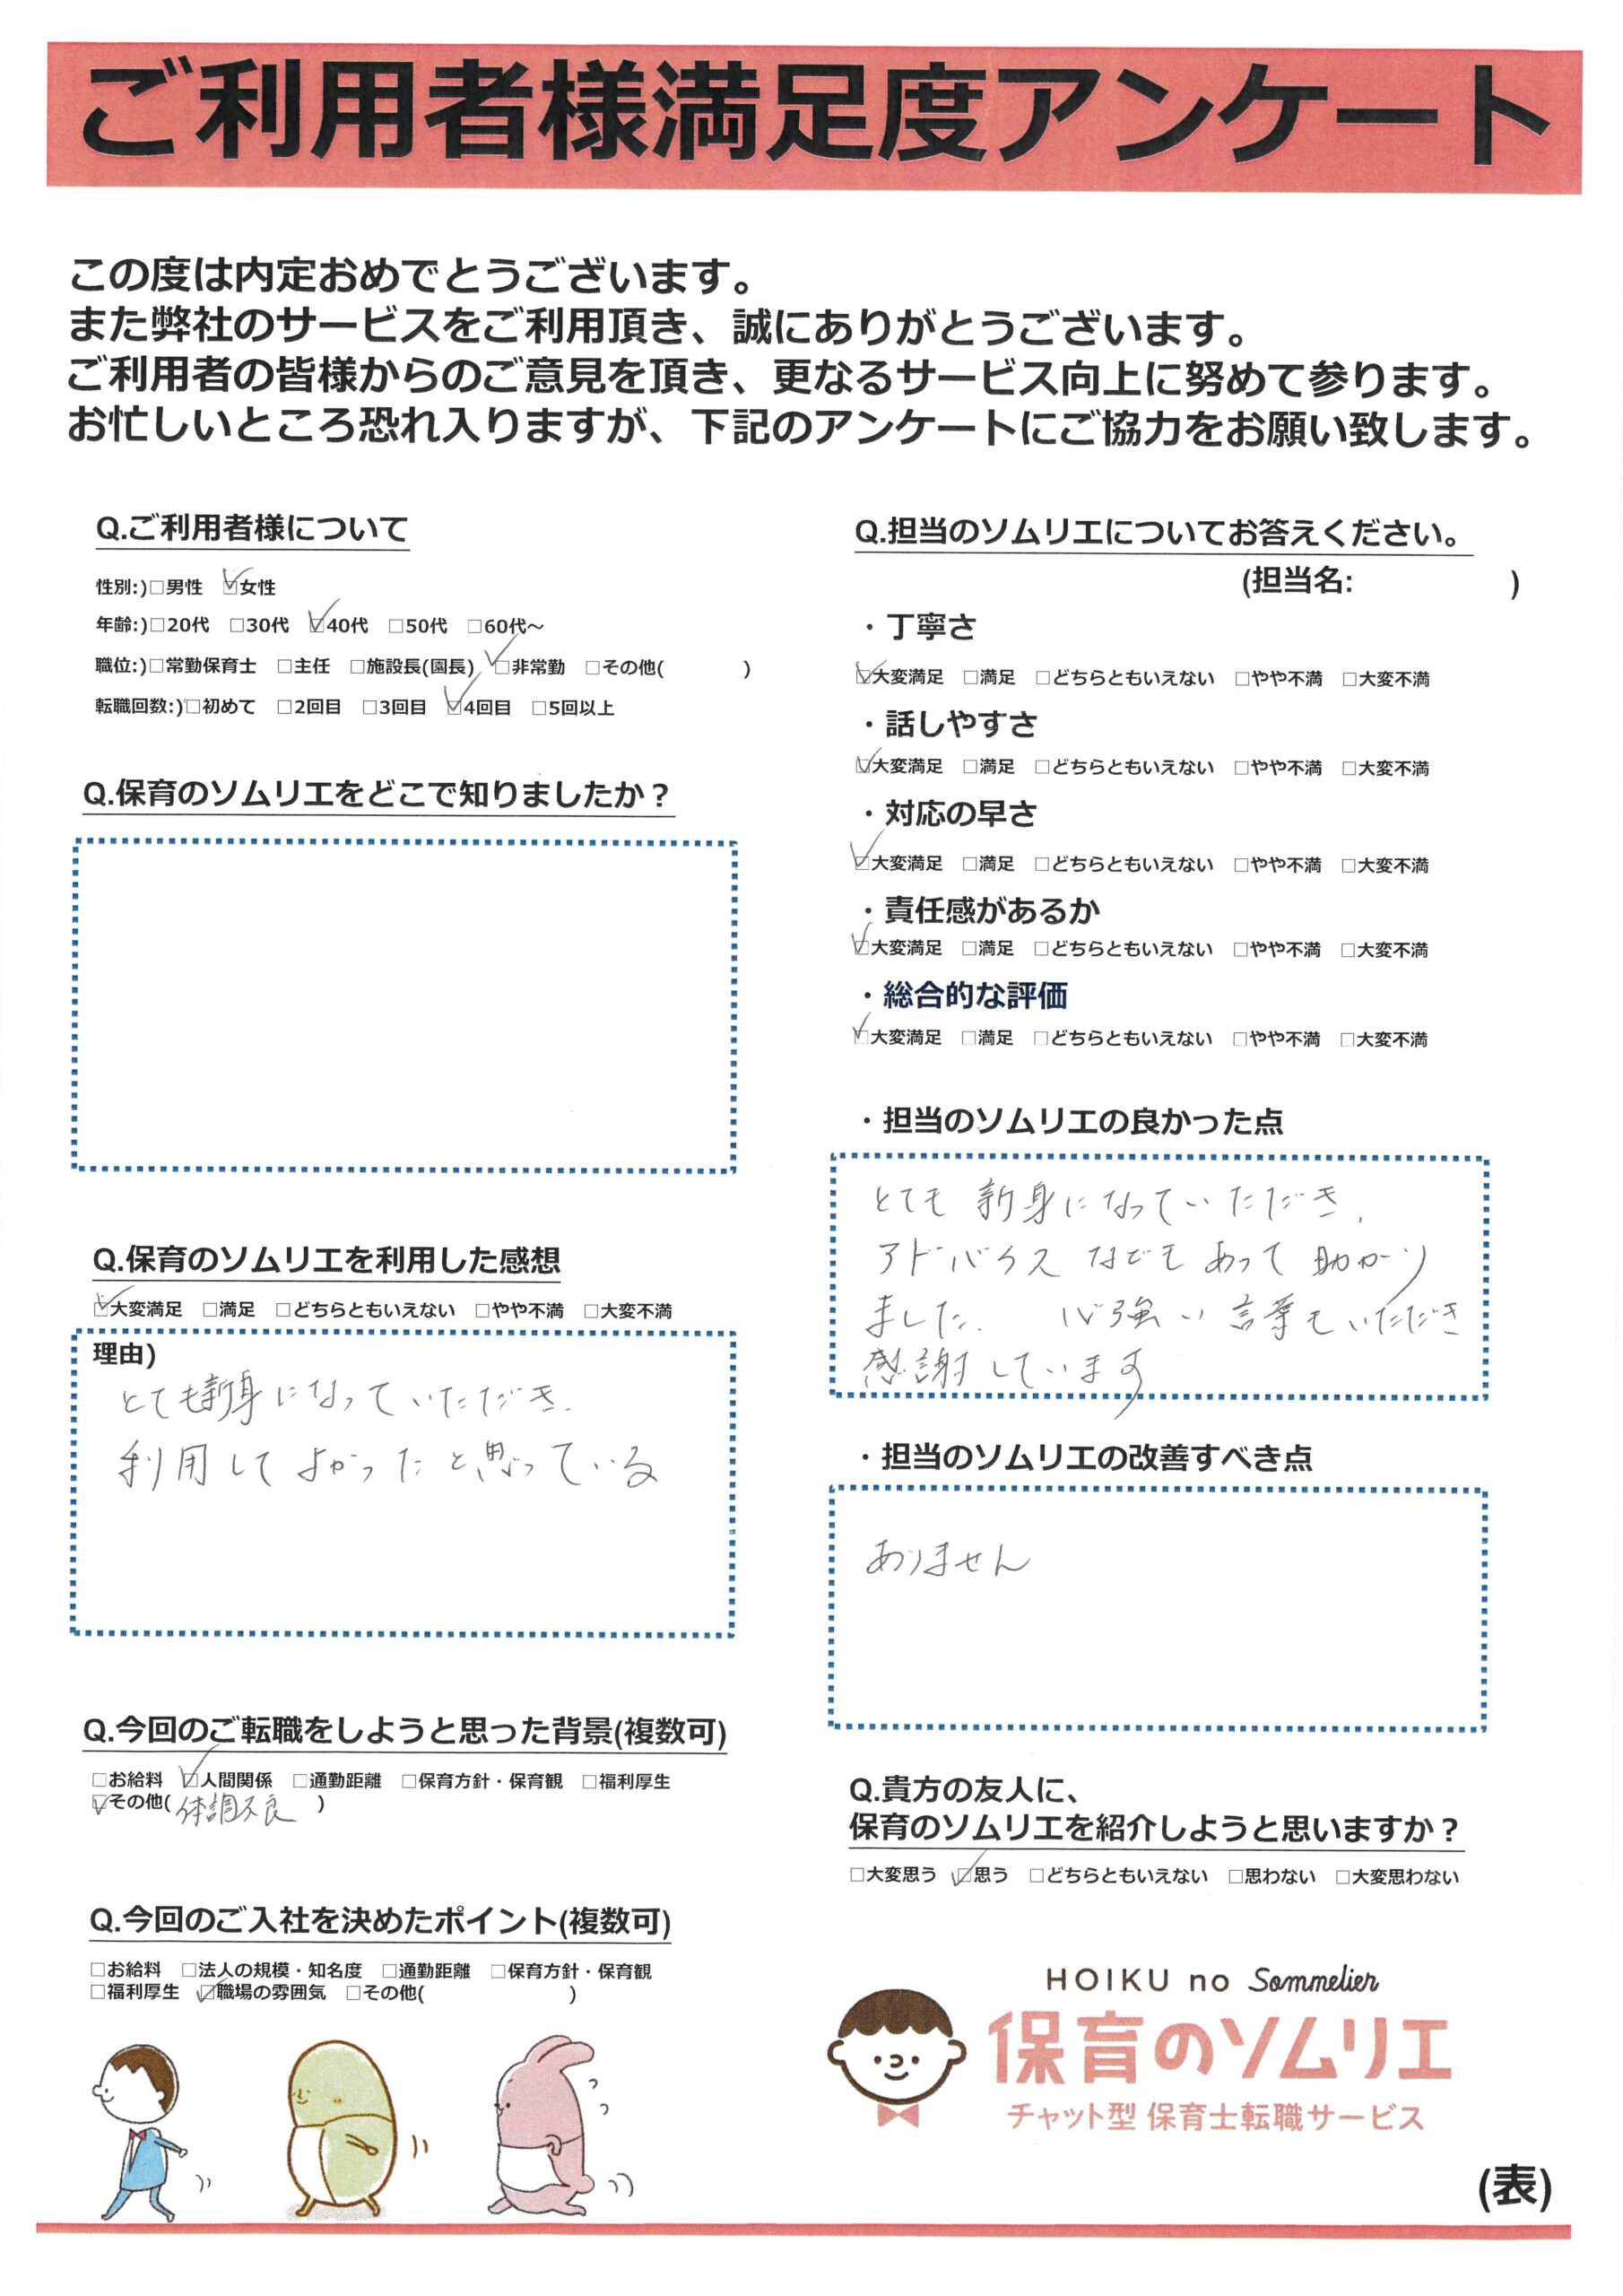 ご利用者様満足度アンケート
この度は内定おめでとうございます。
また弊社のサービスをご利用頂き、誠にありがとうございます。
ご利用者の皆様からのご意見を頂き、更なるサービス向上に努めて参ります。
お忙しいところ恐れ入りますが、下記のアンケートにご協力をお願い致します。
Q.ご利用者様について
性別:)□男性 ☑女性
年齢:)□20代 □30代 ☑40代 □50代 □60代～
職位:)□常勤保育士 □主任 □施設長(園長) ☑非常勤 □その他( )
転職回数:)□初めて □2回目 □3回目 ☑4回目 □5回以上
Q.保育のソムリエをどこで知りましたか？
Q.保育のソムリエを利用した感想
☑大変満足 □満足 □どちらともいえない □やや不満 □大変不満
理由)
とても親身になっていただき、
利用してよかったと思っている
Q.今回のご転職をしようと思った背景(複数可)
□お給料 ☑人間関係 □通勤距離 □保育方針・保育観 □福利厚生
☑その他(体調不良 )
Q.今回のご入社を決めたポイント(複数可)
□お給料 □法人の規模・知名度 □通勤距離 □保育方針・保育観
□福利厚生 ☑職場の雰囲気 □その他( )
Q.担当のソムリエについてお答えください。
(担当名: )
・丁寧さ
☑大変満足 □満足 □どちらともいえない □やや不満 □大変不満
・話しやすさ
☑大変満足 □満足 □どちらともいえない □やや不満 □大変不満
・対応の早さ
☑大変満足 □満足 □どちらともいえない □やや不満 □大変不満
・責任感があるか
☑大変満足 □満足 □どちらともいえない □やや不満 □大変不満
・総合的な評価
☑大変満足 □満足 □どちらともいえない □やや不満 □大変不満
・担当のソムリエの良かった点
とても親身になっていただき、
アドバイスなどもあって助かり
ました。 心強い言葉もいただき
感謝しています
・担当のソムリエの改善すべき点
ありません
Q.貴方の友人に、
保育のソムリエを紹介しようと思いますか？
□大変思う ☑思う □どちらともいえない □思わない □大変思わない
HOIKU no Sommelier
保育のソムリエ
チャット型 保育士転職サービス
(表)